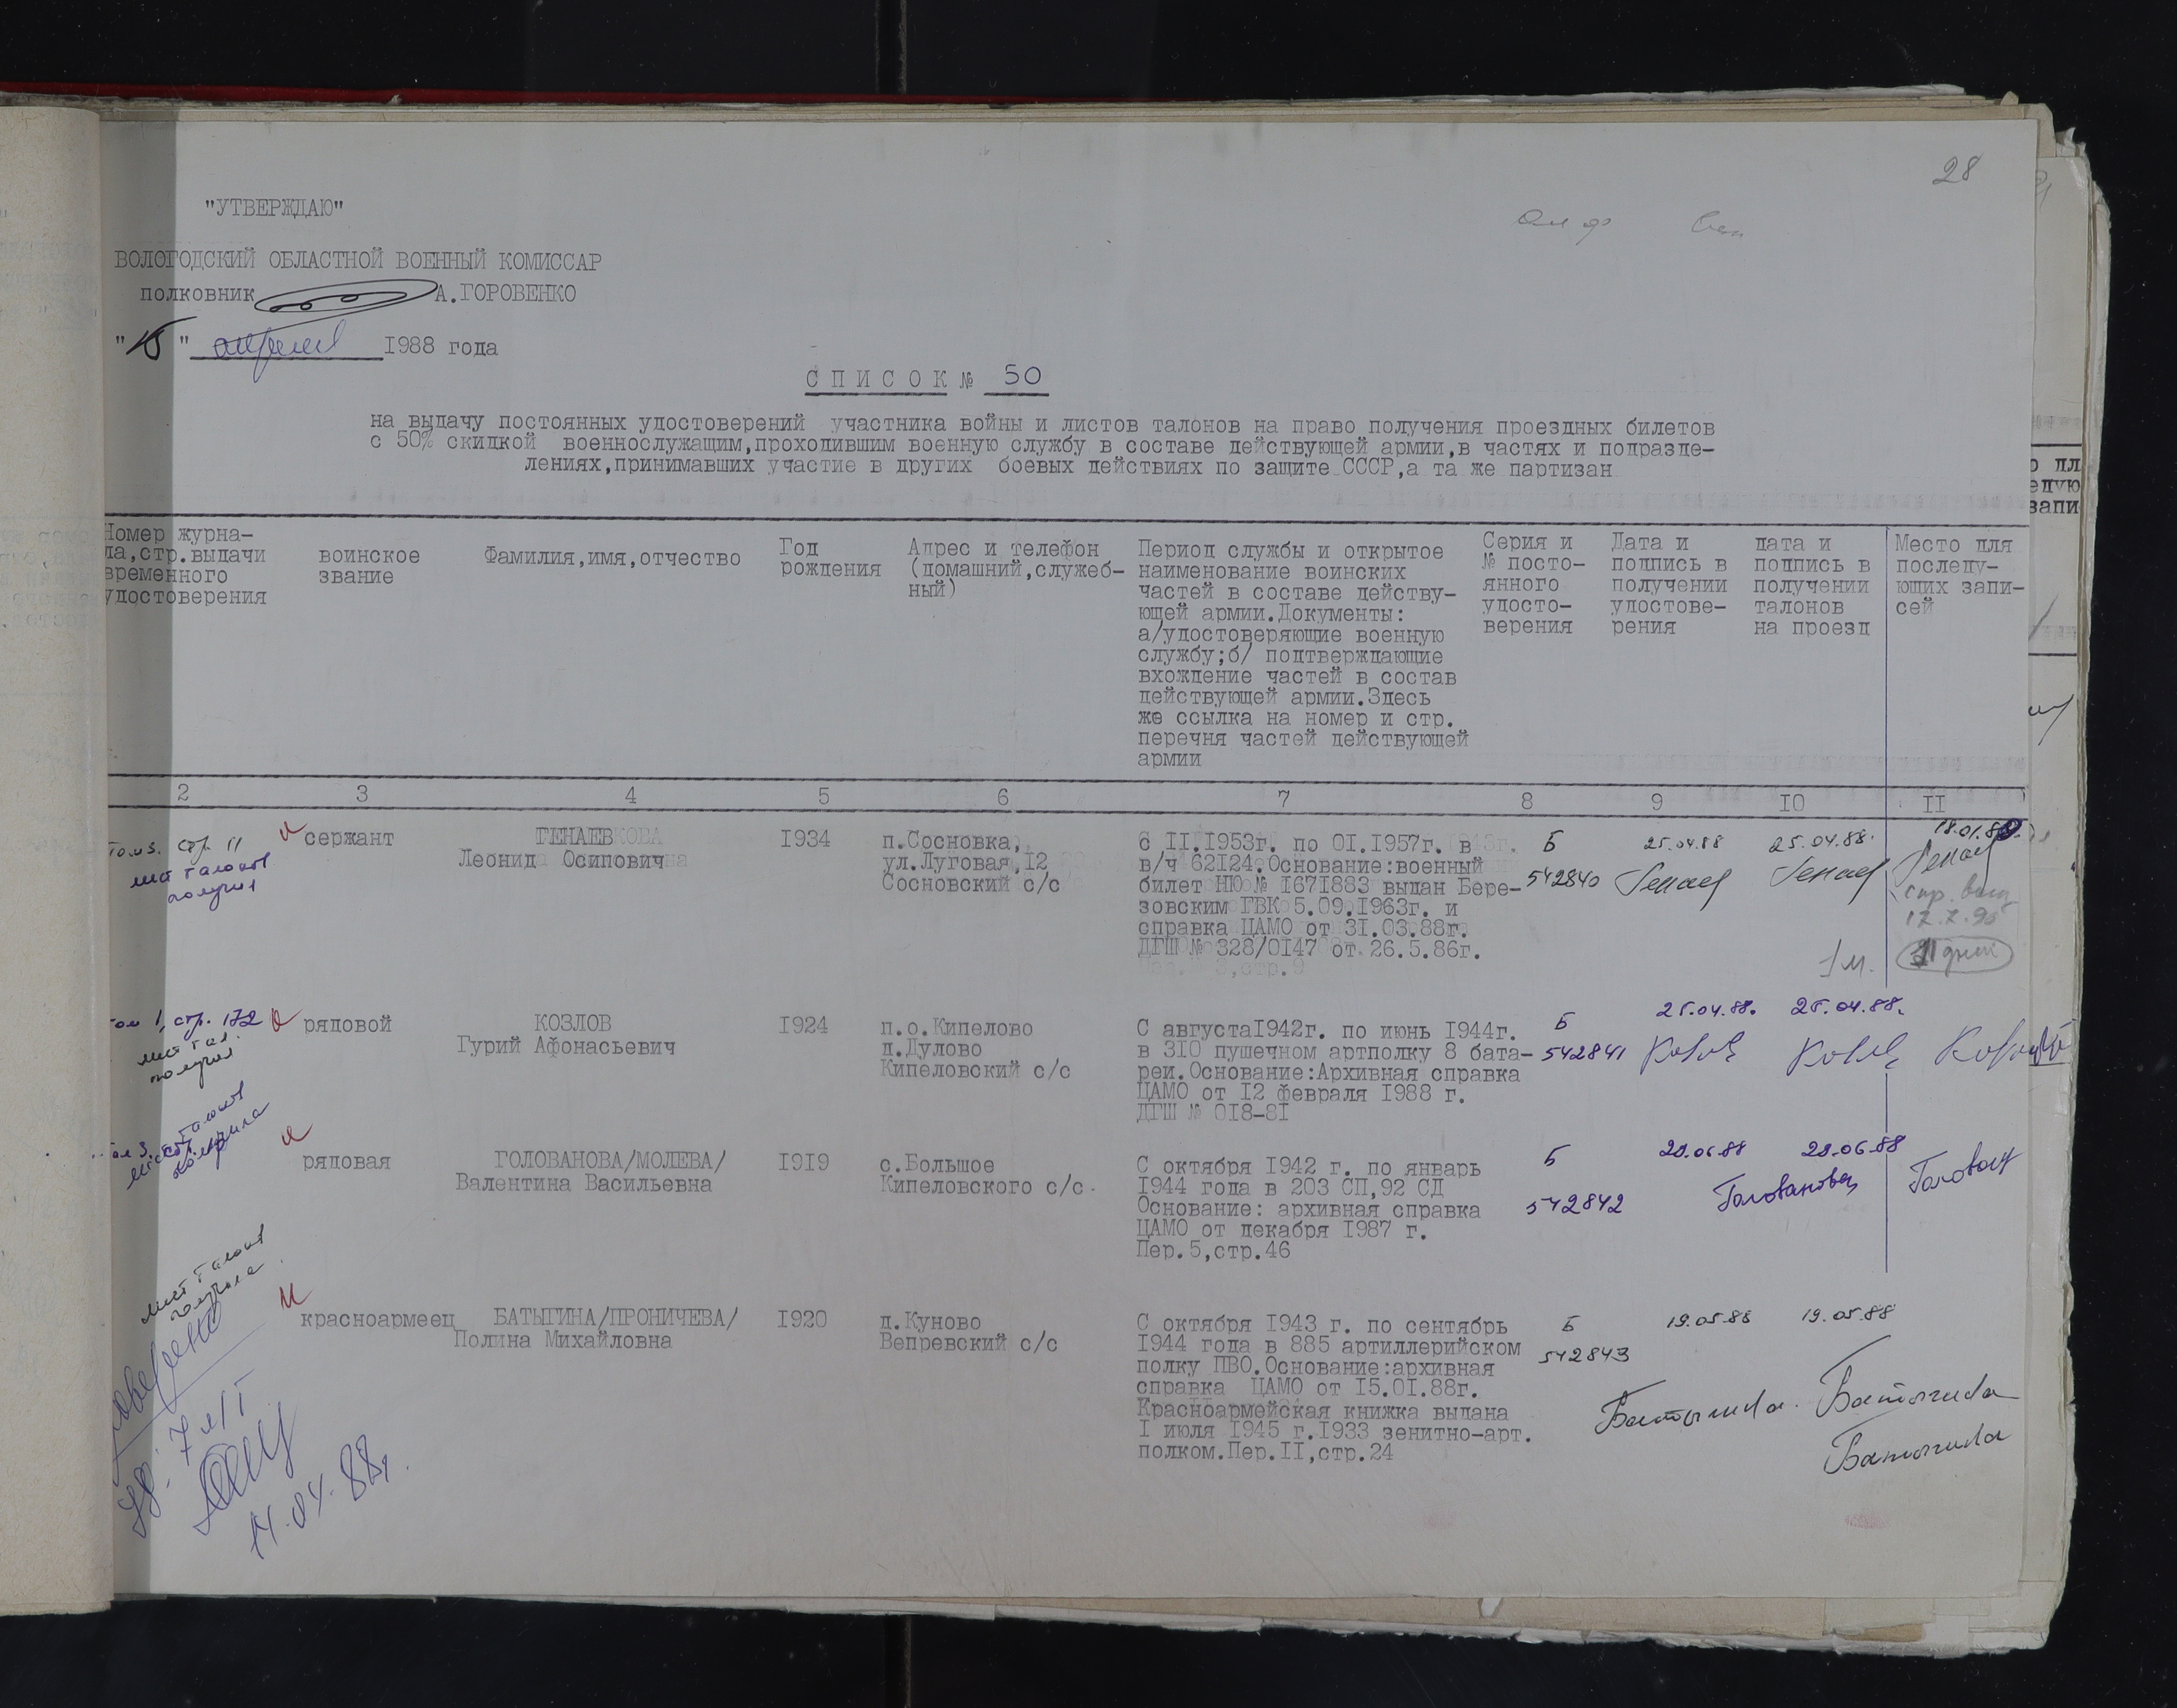 28
"УТВЕРЖДАЮ"
ВОЛОГОДСКИЙ ОБЛАСТНОЙ ВОЕННЫЙ КОМИССАР
полковник А.ГОРОВЕНКО
"15" апреля 1988 года
СПИСОК № 50
на выдачу постоянных удостоверений участника войны и листов талонов на право получения проездных билетов
с 50% скидкой военнослужащим,проходившим военную службу в составе действующей армии,в частях и подразде-
лениях,принимавших участие в других боевых действиях по защите СССР,а та же партизан
Номер журна-
ла,стр.выдачи
временного
удостоверения
воинское
звание
Фамилия,имя,отчество
Год
рождения
Адрес и телефон
(домашний,служеб-
ный)
Период службы и открытое
наименование воинских
частей в составе действу-
ющей армии.Документы:
а/удостоверяющие военную
службу;б/ подтверждающие
вхождение частей в состав
действующей армии.Здесь
же ссылка на номер и стр.
перечня частей действующей
армии
Серия и
№ посто-
янного
удосто-
верения
Дата и
подпись в
получении
удостове-
рения
дата и
подпись в
получении
талонов
на проезд
Место для
последу-
ющих запи-
сей
2 3 4 5 6 7 8 9 10 11
том 3. стр. 11
лист талонов
получил
сержант
ГЕНАЕВ
Леонид Осипович
1934
п.Сосновка,
ул.Луговая,12
Сосновский с/с
С 11.1953г. по 01.1957г. в
в/ч 62124.Основание:военный
билет НЮ № 1671883 выдан Бере-
зовским ГВК 5.09.1963г. и
справка ЦАМО от 31.03.88г.
ДГШ № 328/0147 от 26.5.86г.
Б
542840
25.04.88
Генаев
25.04.88.
Генаев
Генаев
1м.
том 1, стр. 172
лист тал.
получил
рядовой
КОЗЛОВ
Гурий Афонасьевич
1924
п.о.Кипелово
д.Дулово
Кипеловский с/с
С августа1942г. по июнь 1944г.
в 310 пушечном артполку 8 бата-
реи.Основание:Архивная справка
ЦАМО от 12 февраля 1988 г.
ДГШ № 018-81
Б
542841
25.04.88.
25.04.88.
том 3, стр.
лист талонов
получила
рядовая
ГОЛОВАНОВА/МОЛЕВА/
Валентина Васильевна
1919
с.Большое
Кипеловского с/с.
С октября 1942 г. по январь
1944 года в 203 СП,92 СД
Основание: архивная справка
ЦАМО от декабря 1987 г.
Пер.5,стр.46
Б
542842
20.06.88
20.06.88
Голованова
лист талонов
получила
красноармеец
БАТЫГИНА/ПРОНИЧЕВА/
Полина Михайловна
1920
д.Куново
Вепревский с/с
С октября 1943 г. по сентябрь
1944 года в 885 артиллерийском
полку ПВО.Основание:архивная
справка ЦАМО от 15.01.88г.
Красноармейская книжка выдана
1 июля 1945 г.1933 зенитно-арт.
полком.Пер.11,стр.24
Б
542843
19.05.88
19.05.88
Батыгина.
Батыгина
Батыгина
14.04.88г.